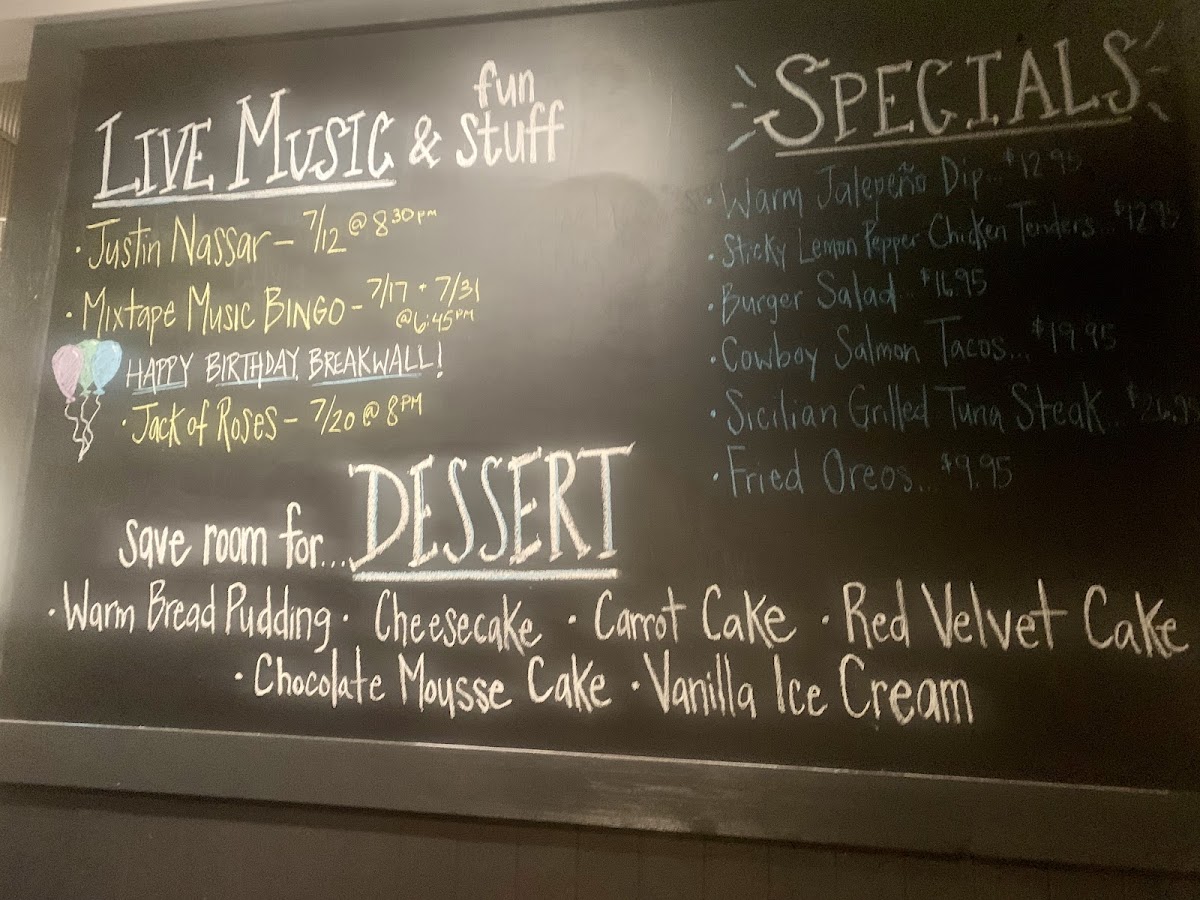 LIVE MUSIC & fun stuff
· Justin Nassar - 7/12 @ 8:30pm
· Mixtape Music BINGO - 7/17 + 7/31
@6:45PM
HAPPY BIRTHDAY BREAKWALL!
· Jack of Roses - 7/20 @ 8PM
SPECIALS
· Warm Jalepeño Dip... $12.95
· Sticky Lemon Pepper Chicken Tenders... $12.95
· Burger Salad... $16.95
· Cowboy Salmon Tacos... $19.95
· Sicilian Grilled Tuna Steak...
· Fried Oreos... $9.95
save room for... DESSERT
· Warm Bread Pudding · Cheesecake · Carrot Cake · Red Velvet Cake
· Chocolate Mousse Cake · Vanilla Ice Cream